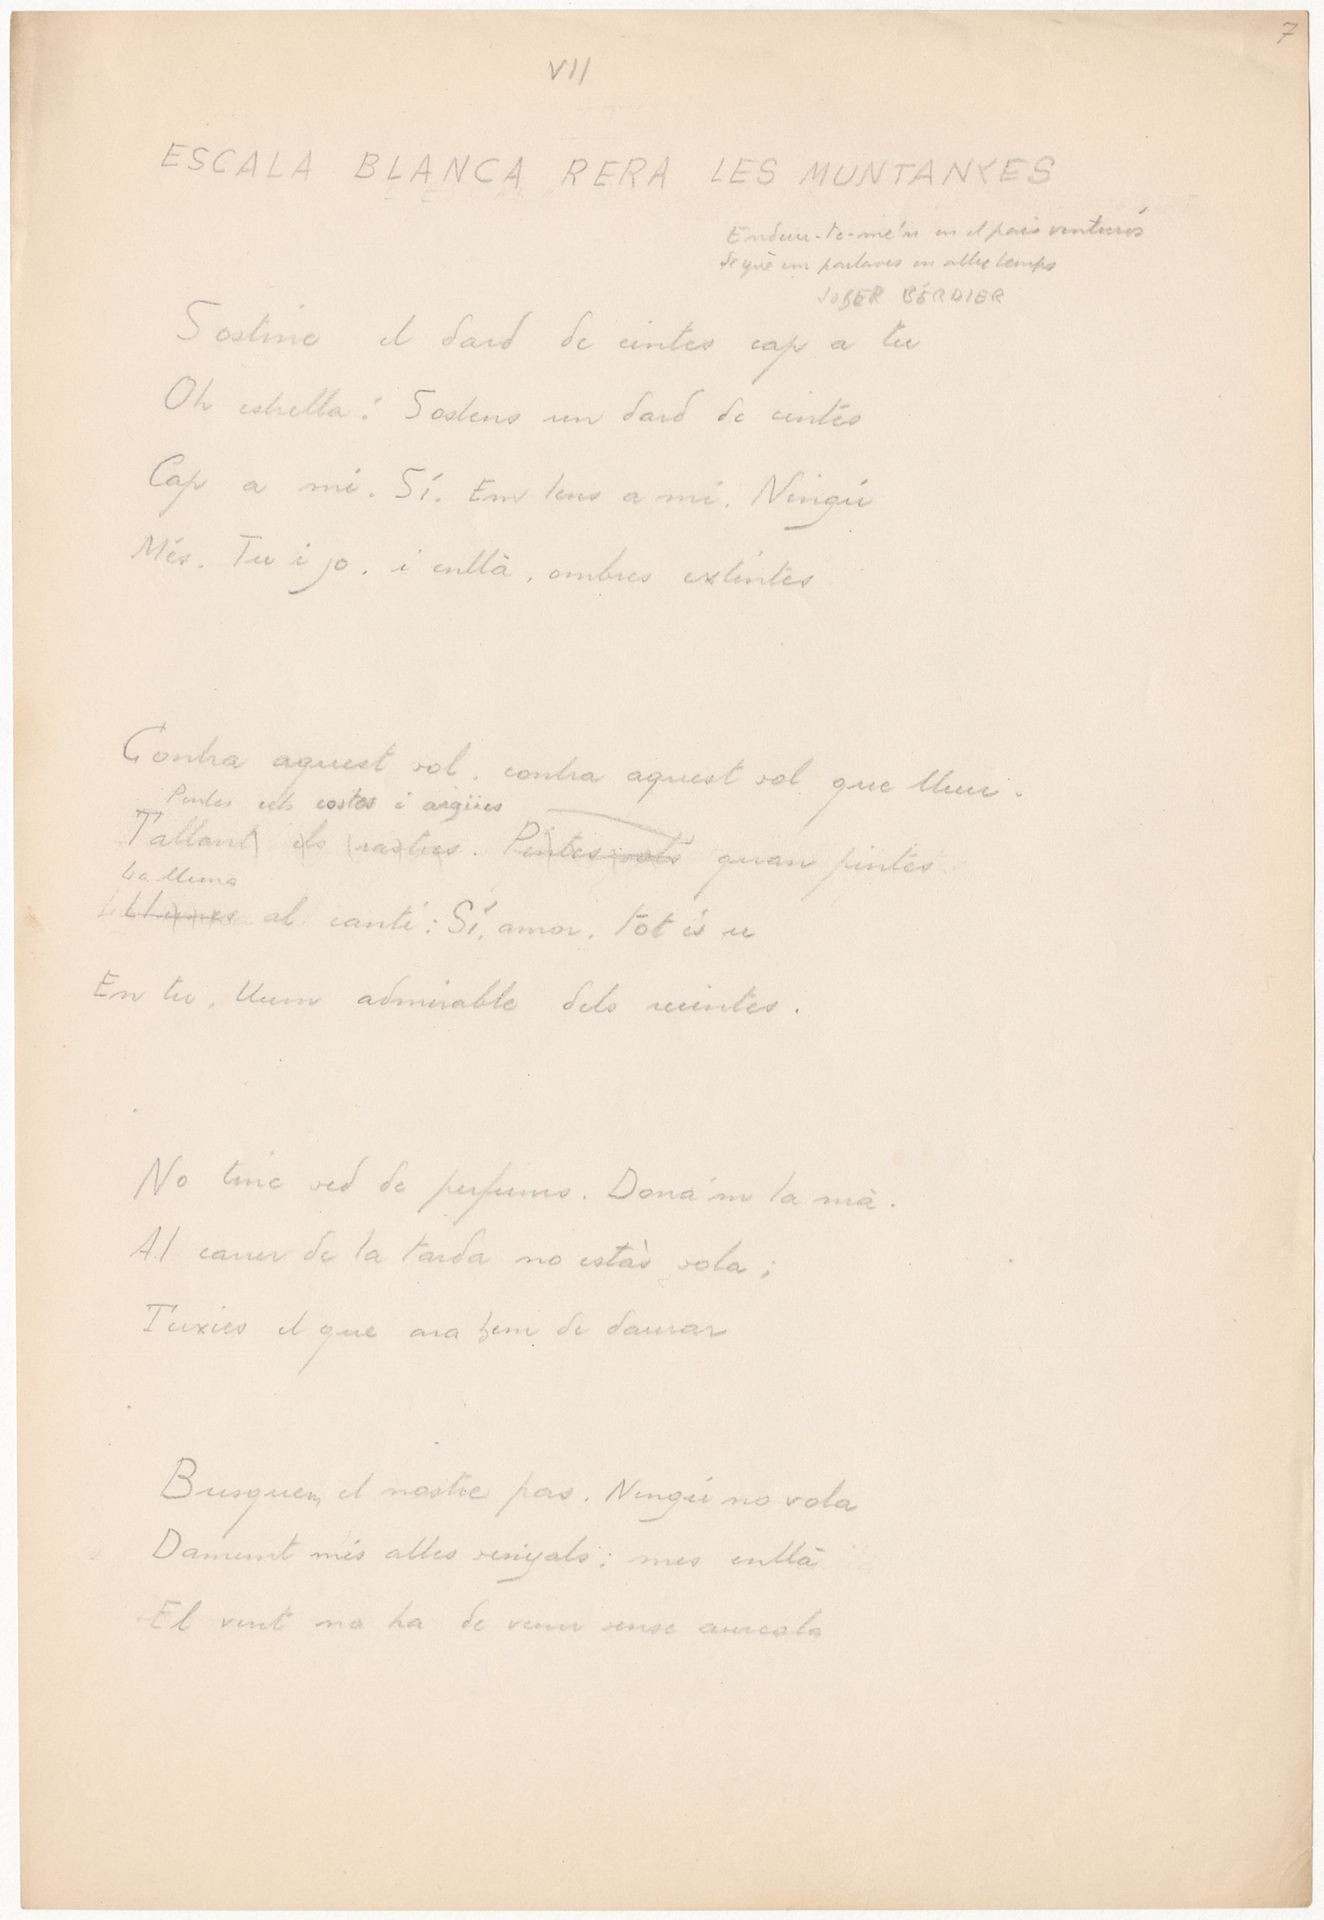 7
VII
ESCALA BLANCA RERA LES MUNTANYES
Enduu-te-me'n en el país venturós
de què em parlaves en altre temps
JOSEP BERDIER
Sostinc el dard de cintes cap a tu
Oh estrella! Sostens un dard de cintes
Cap a mi. Sí. Em tens a mi. Ningú
Més. Tu i jo. i enllà, ombres extintes
Contra aquest sol. contra aquest sol que lluu.
Pintes cels costes i aigües
Tallant els rastres. Pintes sols quan pintes
La lluna
Llunes al cantí: Sí, amor. Tot és u
En tu. Llum admirable dels recintes.
No tinc sed de perfums. Dona'm la mà.
Al carrer de la tarda no estàs sola;
Tuxies el que ara hem de daurar
Busquem el nostre pas. Ningú no vola
Damunt més altes senyals; mes enllà
El vent no ha de venir sense aureola